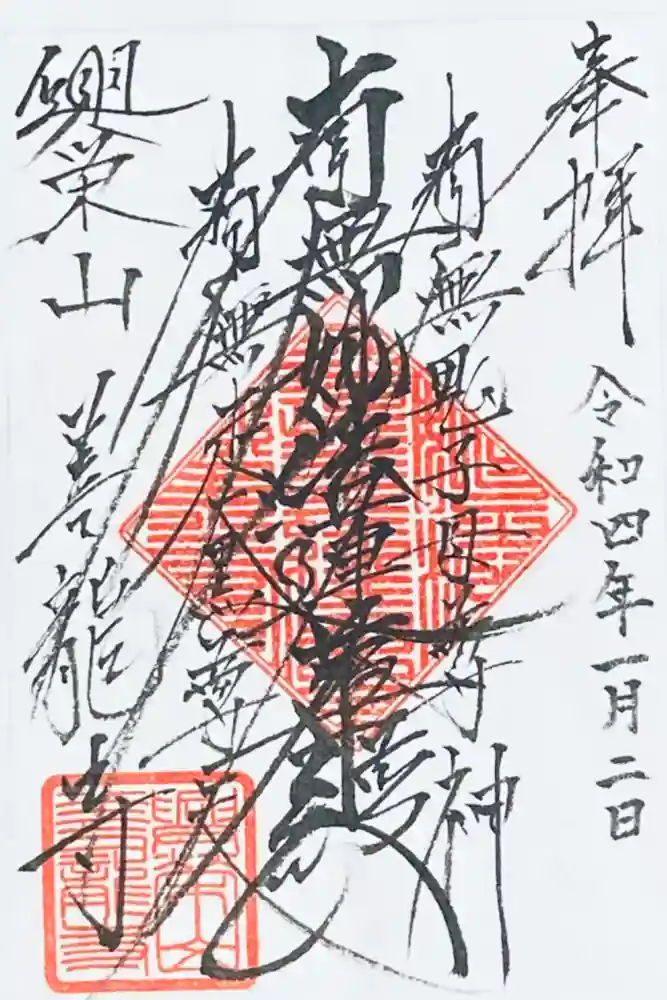 奉拝
令和四年一月二日
南無鬼子母尊神
南無妙法蓮華経
南無大黒尊天
栄山
善龍寺